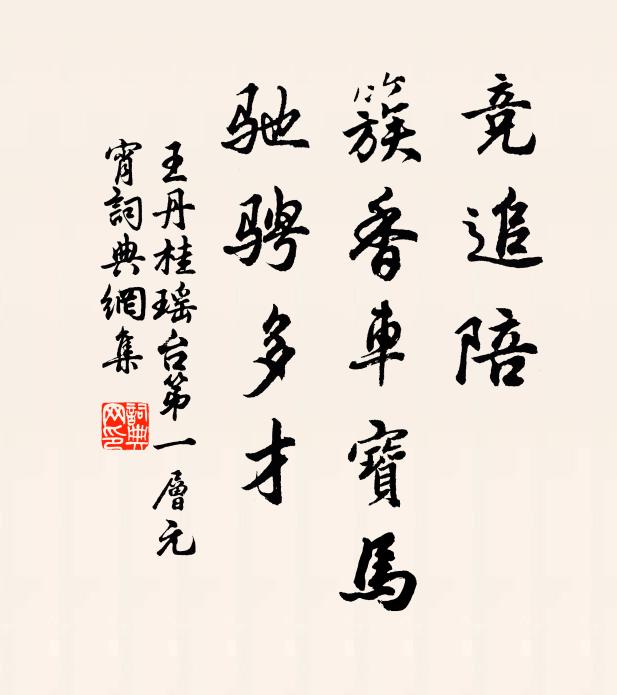 竞追陪
簇香車寶馬
驰骋多才
王丹桂瑶台第一層元
宵詞典網集
詞典
网印